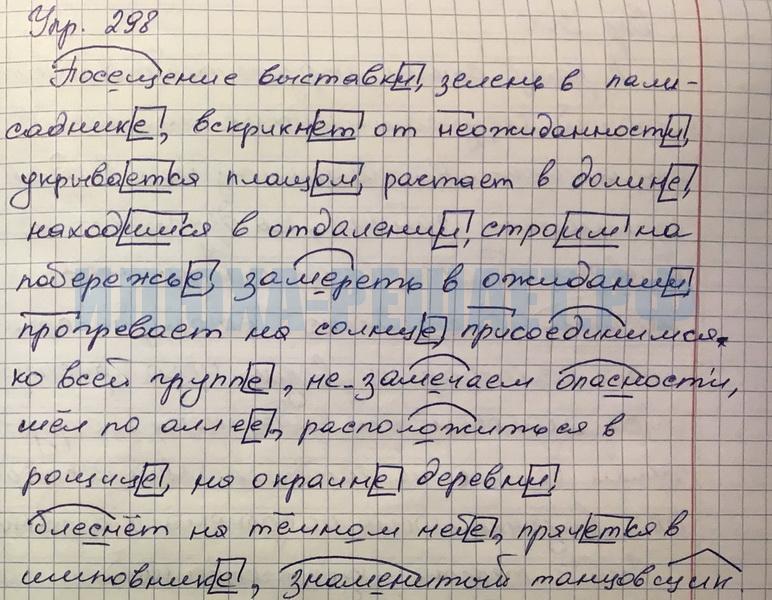 Упр. 298
Посещение выставки, зелень в пали-
саднике, вскрикнет от неожиданности,
укрывается плащом, растает в долине,
находимся в отдалении, строим на
побережье, замереть в ожидании,
прогревает на солнце, присоединимся
ко всей группе, не замечаем опасности,
шёл по аллее, расположиться в
рощице, на окраине деревни,
блеснёт на тёмном небе, прячется в
шиповнике, знаменитый танцовщик.
ИЛЮХА-РЕШАЕТ.РФ